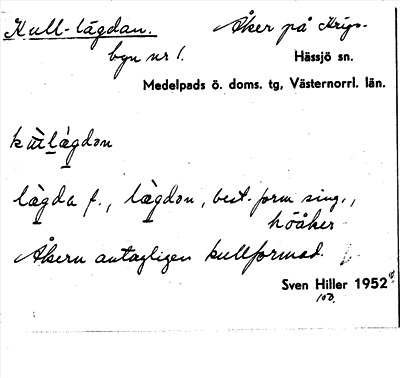 Kull-lägdan. Åker på Krigs-
byn nr 1. Hässjö sn.
Medelpads ö. doms. tg, Västernorrl. län.
lägda f., lägdən, best. form sing.,
höåker
Åkern antagligen kullformad.
Sven Hiller 1952